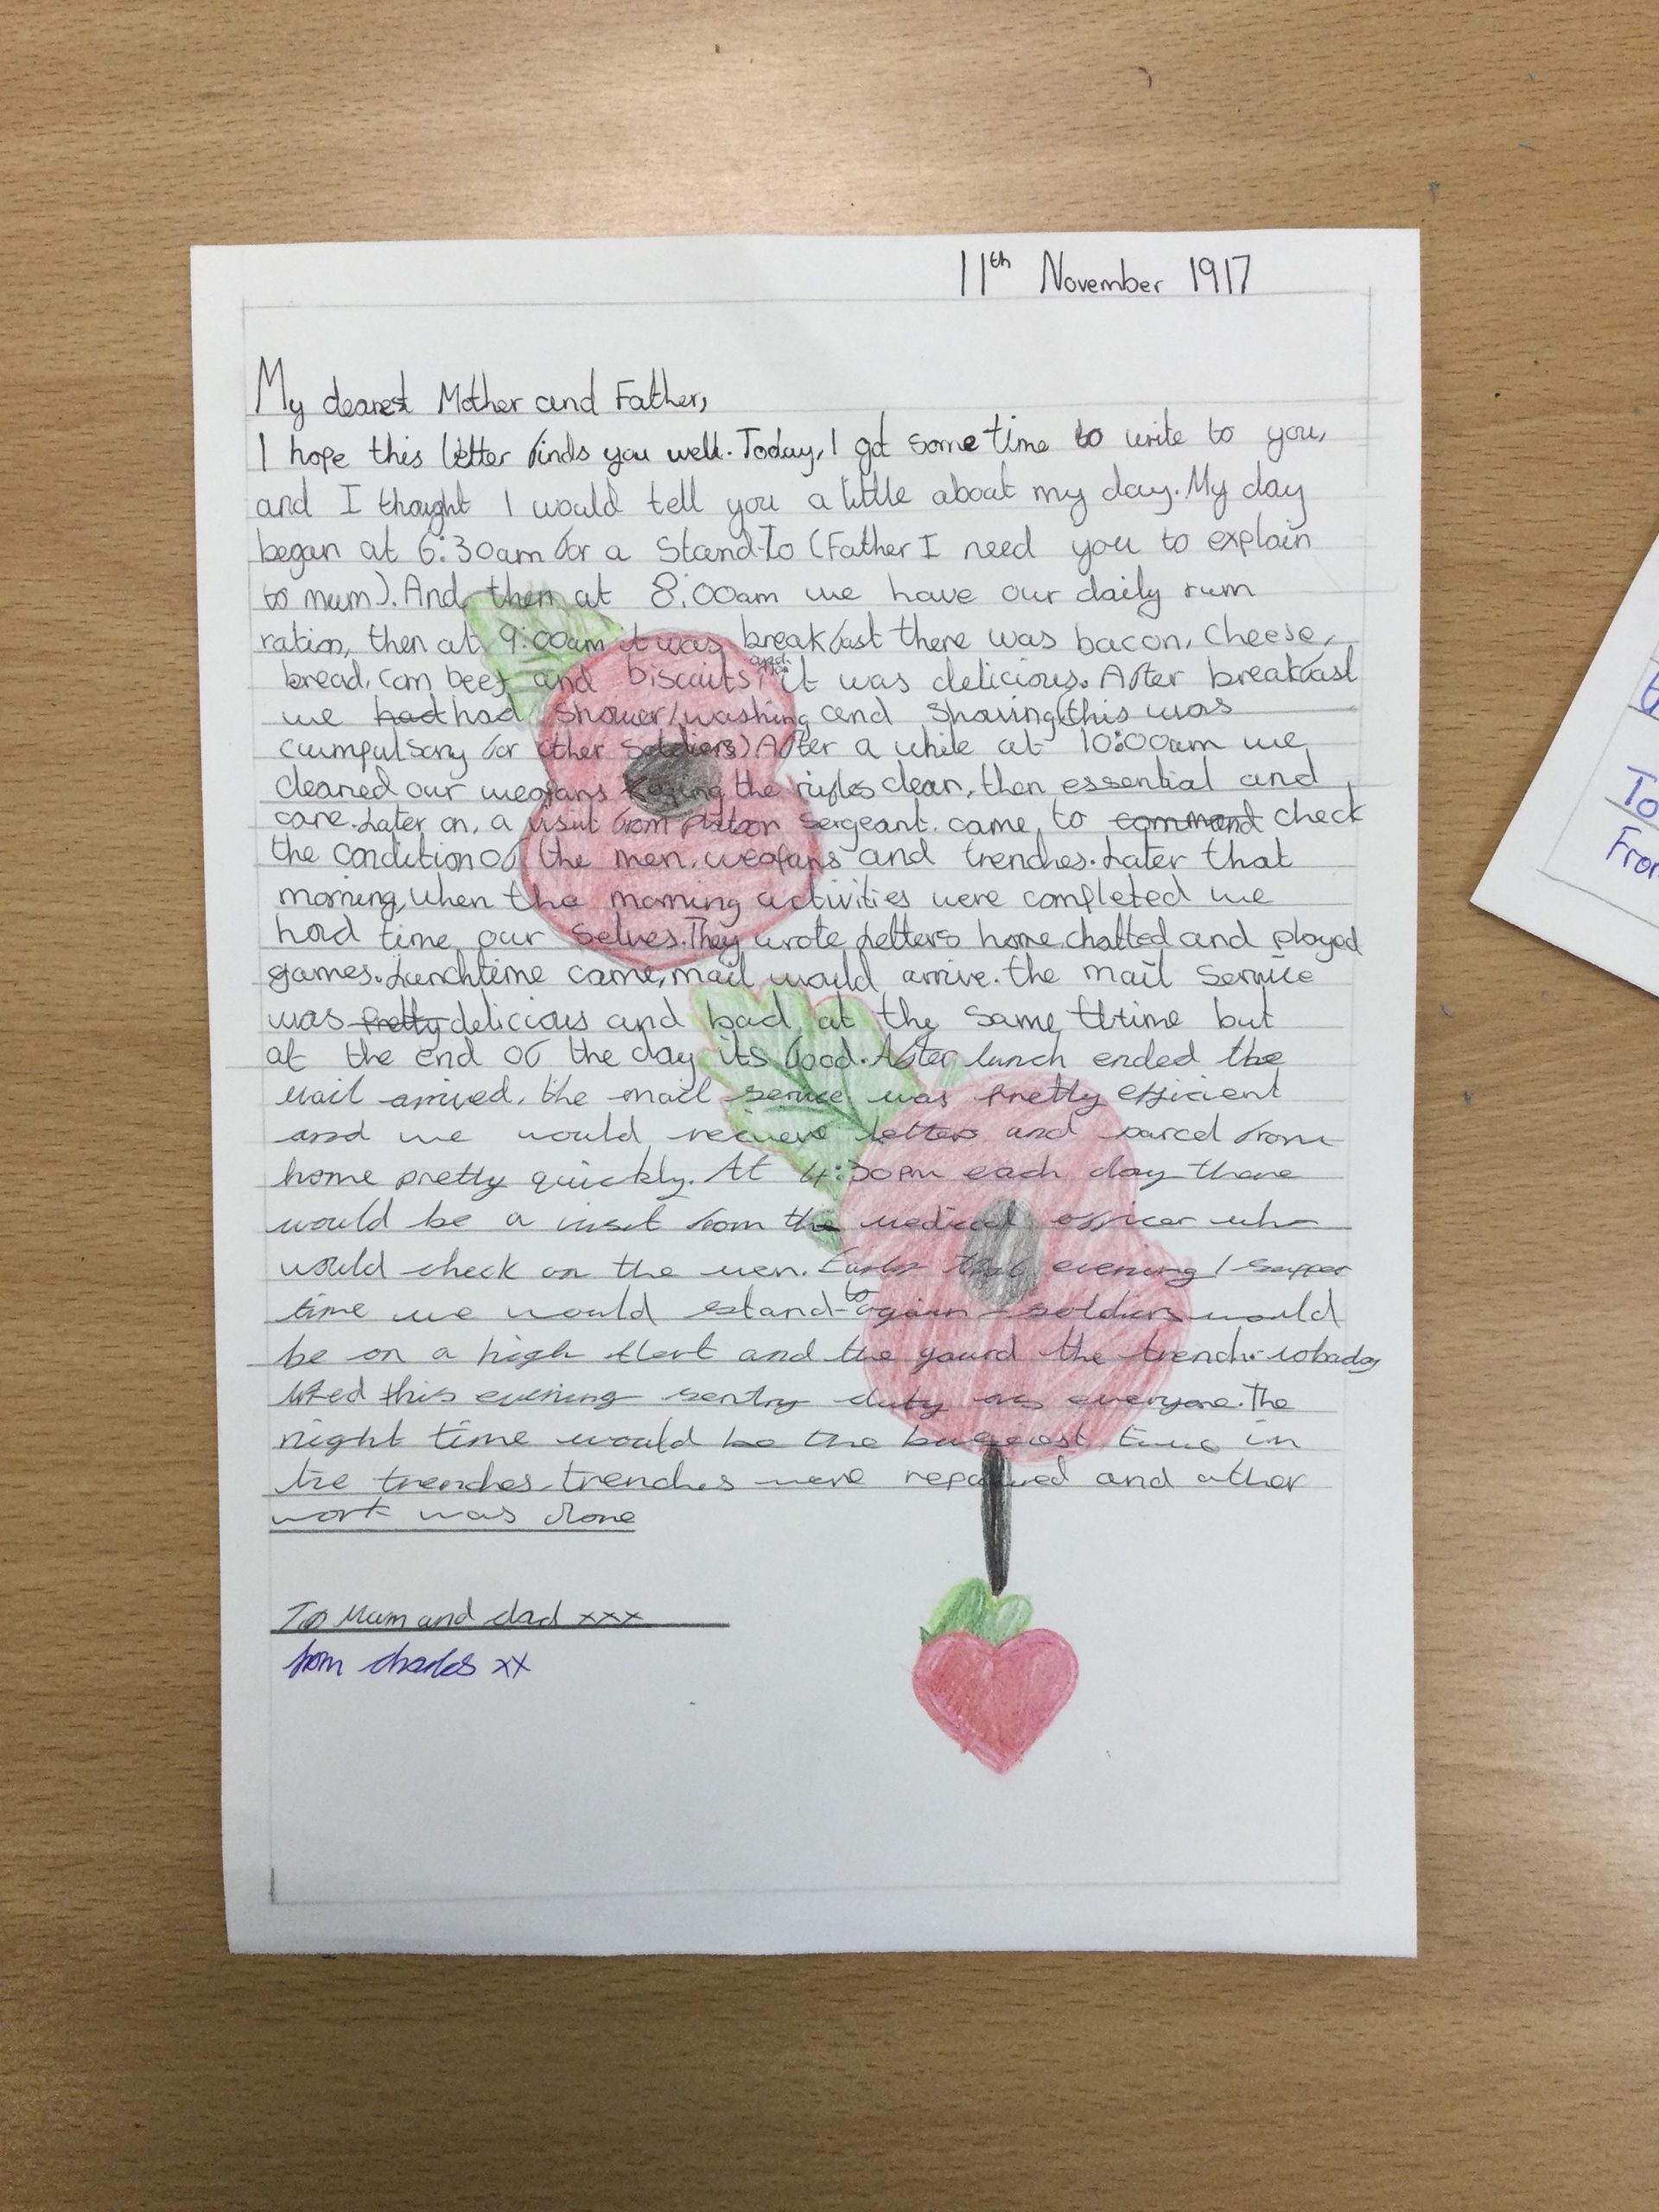 11th November 1917
My dearest Mother and Father,
I hope this letter finds you well. Today, I got some time to write to you,
and I thought I would tell you a little about my day. My day
began at 6:30am for a Stand-To (Father I need you to explain
to mum). And then at 8:00am we have our daily rum
ration, then at 9:00am it was breakfast there was bacon, cheese,
bread, can beef and biscuits, and it was delicious. After breakfast
we had had shower/washing and shaving (this was
cumpulsory for other soldiers) After a while at 10:00am we
cleaned our weapans the rifles clean, then essential and
care. Later on, a visit from platoon sergeant. came to command check
the condition of the men, weapans and trenches. Later that
morning, when the morning activities were completed we
had time our selves. They wrote letters home, chatted and played
games. Lunchtime came, mail would arrive. the mail service
was pretty delicious and bad at the same time but
at the end of the day its food. After lunch ended the
mail arrived, the mail service was pretty efficient
and we would recieve letters and parcel from
home pretty quickly. At 4:30pm each day there
would be a visit from the medical officer who
would check on the men. that evening / supper
time we would stand-to again - soldiers would
be on a high alert and the gaurd the trench.
this evening sentry duty as everyone. The
night time would be the busiest time in
the trenches, trenches were repaired and other
work was done
To Mum and dad xxx
from charles xx
To
From